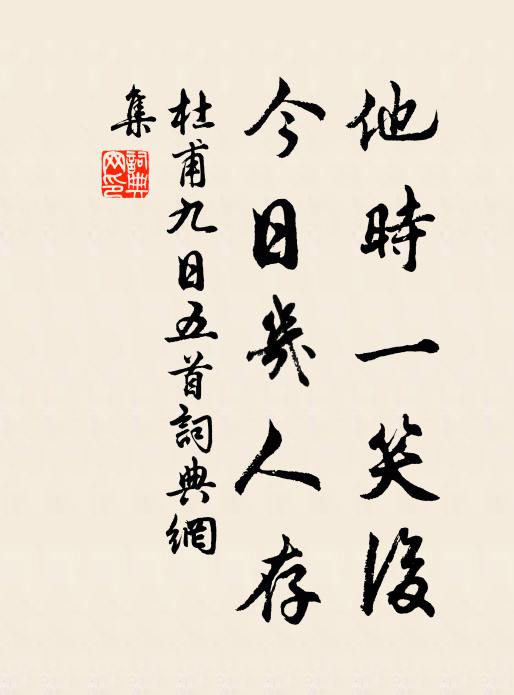 他時一笑後
今日幾人存
杜甫九日五首詞典網
集
詞典
网印